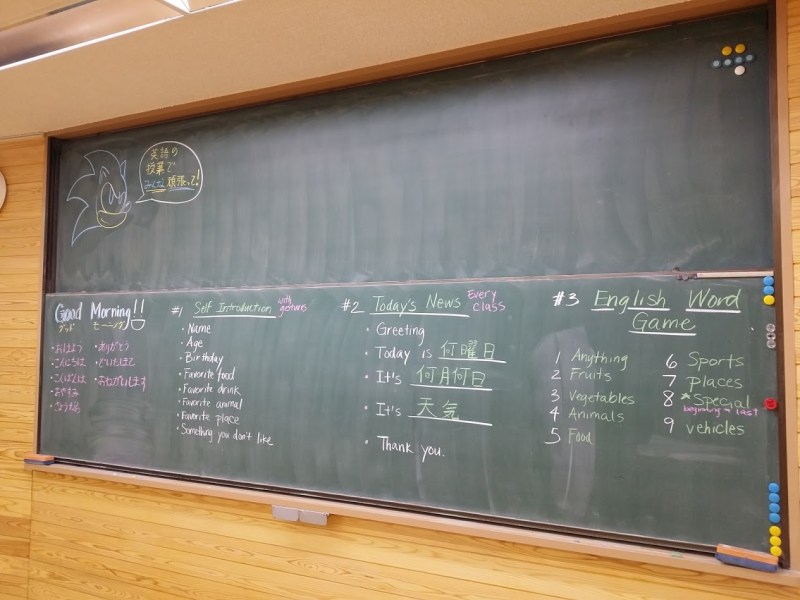 英語の
授業で
みんな 頑張って!
Good Morning!!
グッド モーニング
・おはよう
・こんにちは
・こんばんは
・おやすみ
・さようなら
・ありがとう
・どういたしまして
・おねがいします
#1 Self Introduction with gestures
・Name
・Age
・Birthday
・Favorite food
・Favorite drink
・Favorite animal
・Favorite place
・Something you don't like
#2 Today's News Every class
・Greeting
・Today is 何曜日
・It's 何月何日
・It's 天気
・Thank you.
#3 English Word Game
1 Anything
2 Fruits
3 Vegetables
4 Animals
5 Food
6 Sports
7 places
8 *Special
beginning → last
9 vehicles